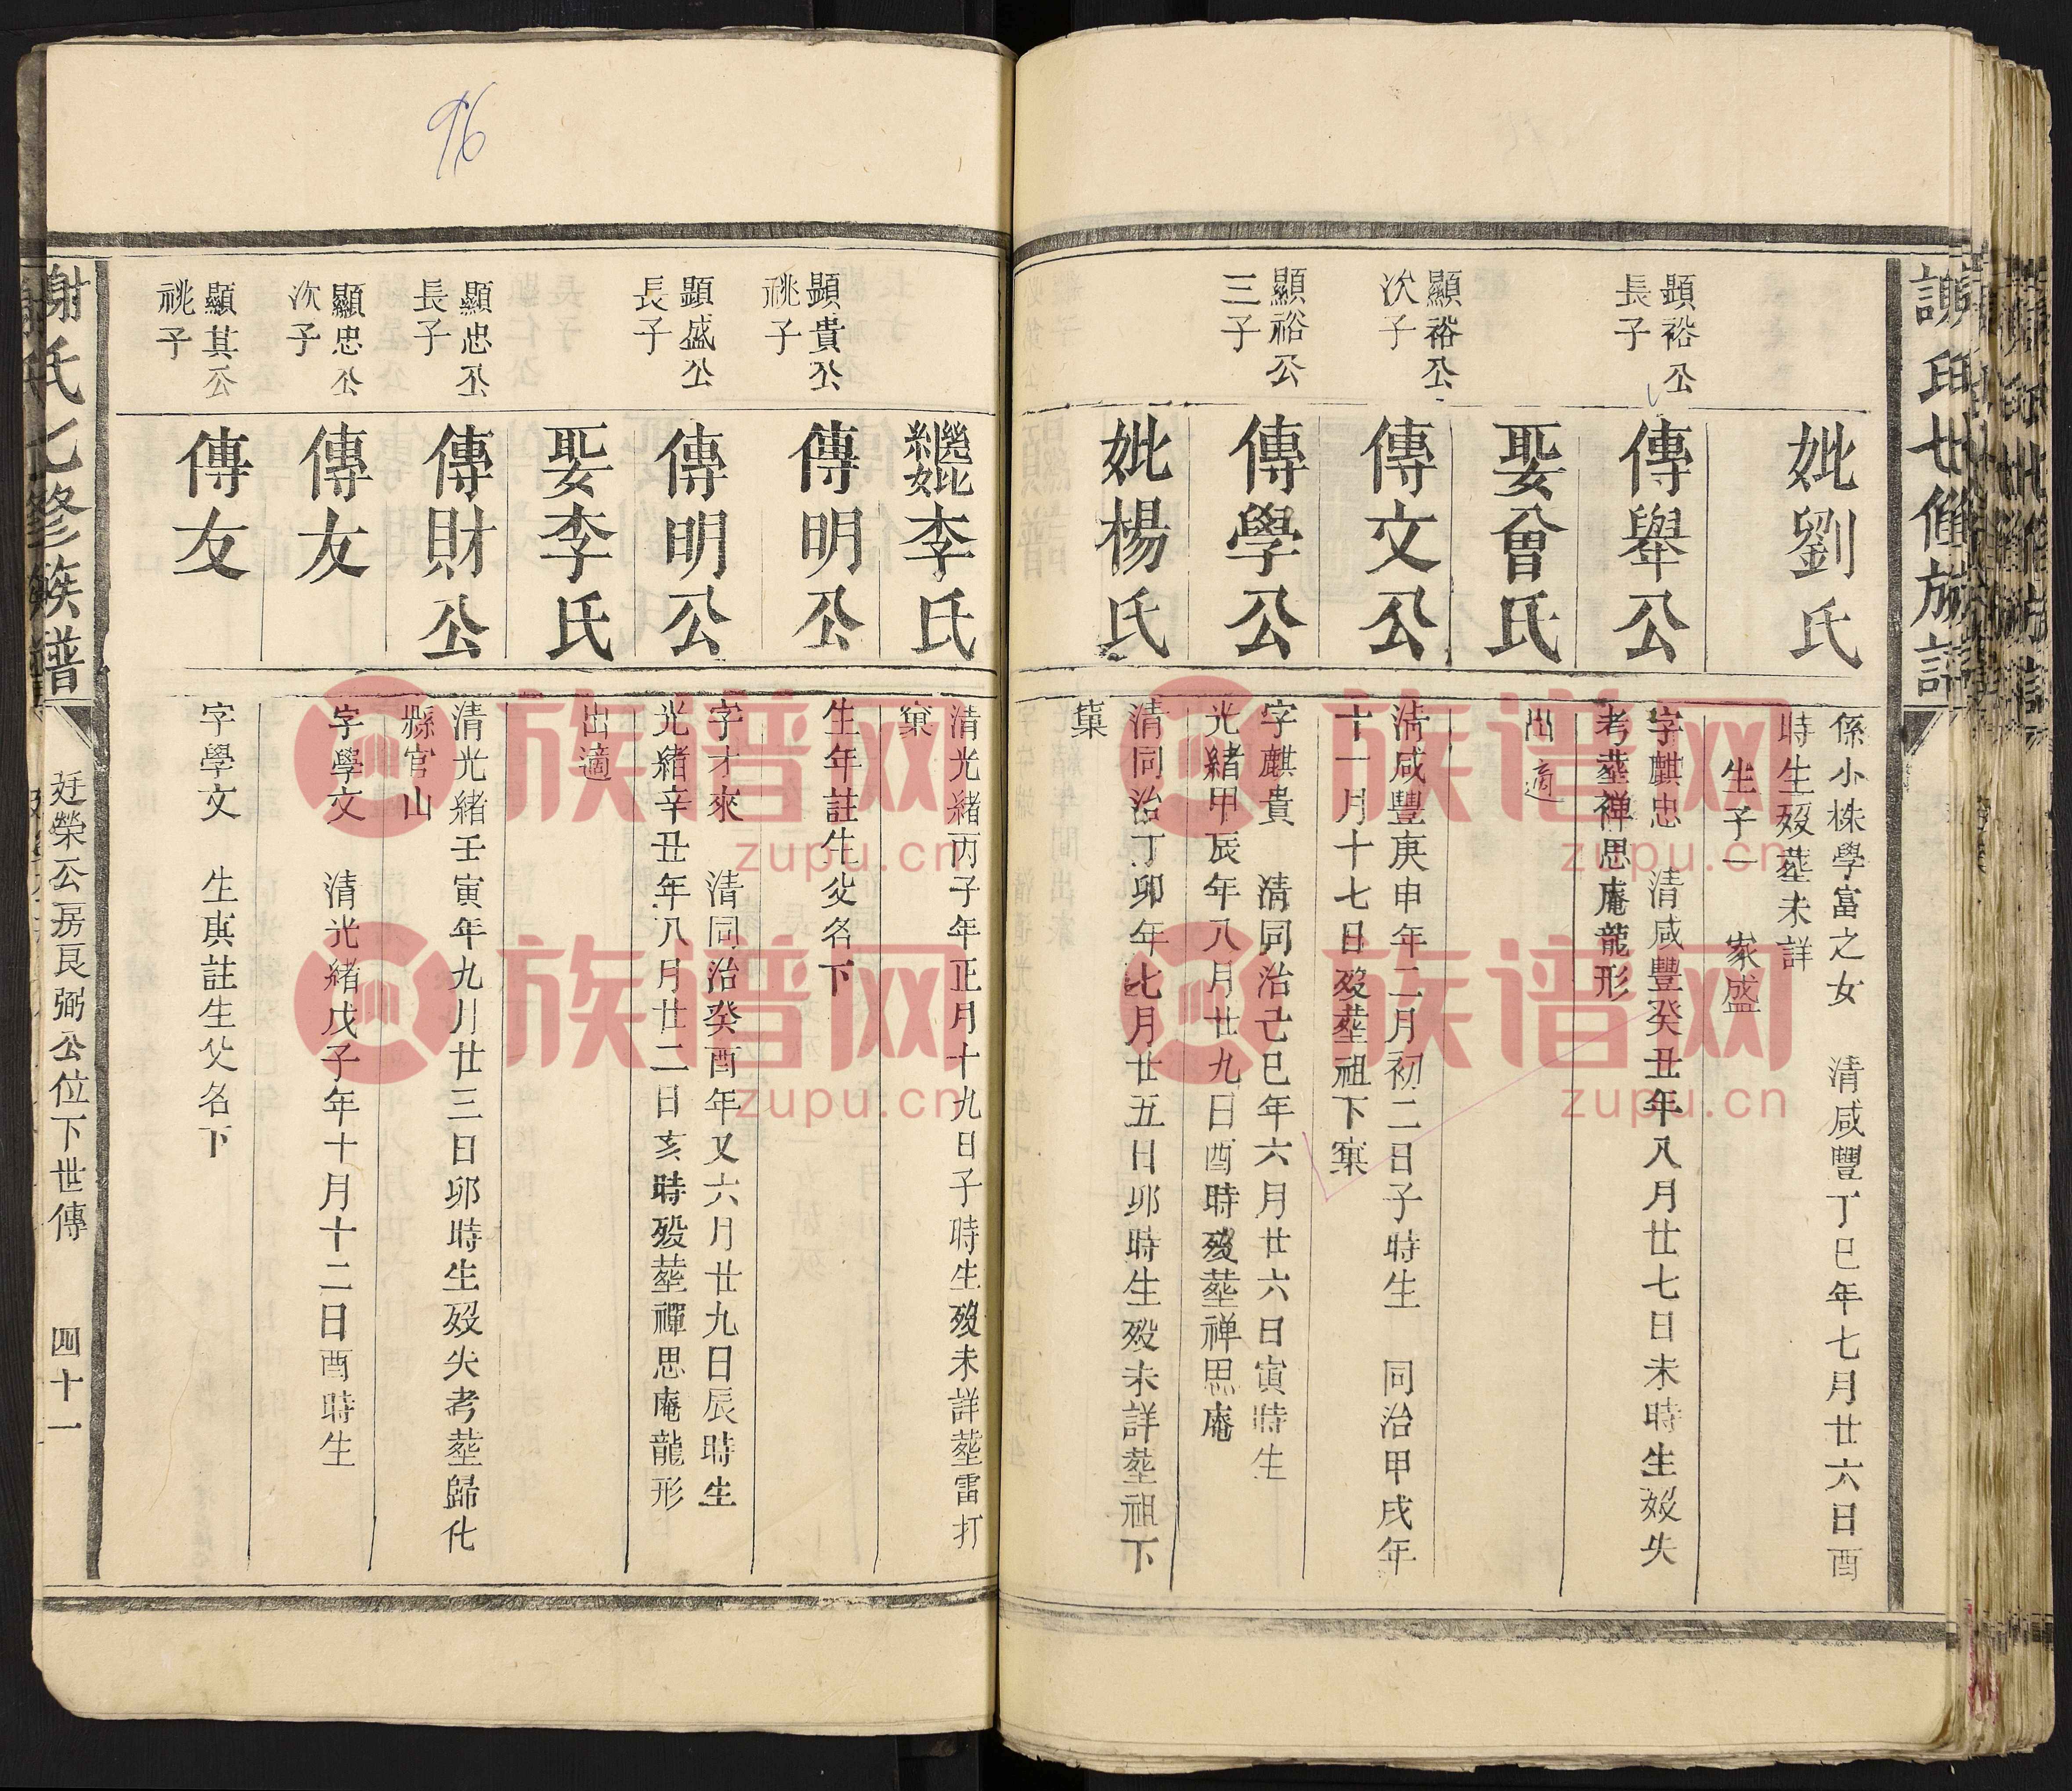 妣劉氏
係小株學富之女 清咸豐丁巳年七月廿六日酉
時生歿塟未詳
生子一 家盛
顯裕公
長子
傳舉公
字麒忠 清咸豐癸丑年八月廿七日未時生歿失
考塟禅思庵龍形
娶曾氏
出適
顯裕公
次子
傳文公
清咸豐庚申年二月初二日子時生 同治甲戌年
十一月十七日歿塟祖下窠
顯裕公
三子
傳學公
字麒貴 清同治己巳年六月廿六日寅時生
光緒甲辰年八月廿九日酉時歿塟禅思庵
妣楊氏
清同治丁卯年七月廿五日卯時生歿未詳塟祖下
窠
96
繼妣李氏
清光緒丙子年正月十九日子時生歿未詳塟雷打
窠
顯貴公
祧子
傳明公
生年註生父名下
顯盛公
長子
傳明公
字才來 清同治癸酉年又六月廿九日辰時生
光緒辛丑年八月廿二日亥時歿塟禪思庵龍形
娶李氏
出適
顯忠公
長子
傳財公
清光緒壬寅年九月廿三日卯時生歿失考塟歸化
縣官山
顯忠公
次子
傳友
字學文 清光緒戊子年十月十二日酉時生
顯其公
祧子
傳友
字學文 生庚註生父名下
謝氏七修族譜
廷榮公房良弼公位下世傳 四十一
族谱网
zupu.cn
族谱网
zupu.cn
族谱网
zupu.cn
族谱网
zupu.cn